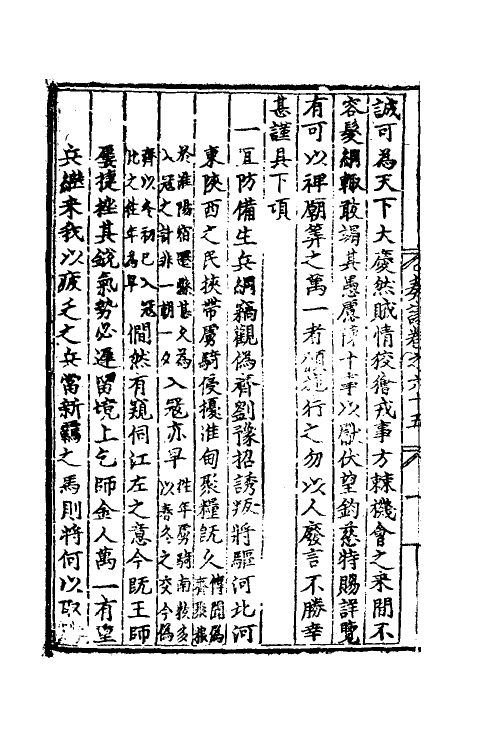 誠可為天下大慶然賊情狡獪戎事方棘機會之來間不
容髮綱輒敢竭其愚慮條十事以獻伏望鈞慈特賜詳覽
有可以裨廟筭之萬一者 行之勿以人廢言不勝幸
甚謹具下項
一宜防備生兵綱竊觀偽齊劉豫招誘叛將驅河北河
東陝西之民挾帶虜騎侵擾淮甸聚糧既久傳聞偽齊聚糧
於淮陽宿遷縣甚久為入冦之計非一朝一夕入冦亦早往年虜騎南牧多以春冬之交今偽
齊以冬初已入冦比之往年為早僩然有窺伺江左之意今既王師
屢捷挫其銳氣勢必遲留境上乞師金人萬一有望
兵繼来我以疲乏之兵當新羇之馬則將何以取
奏議卷之六十五